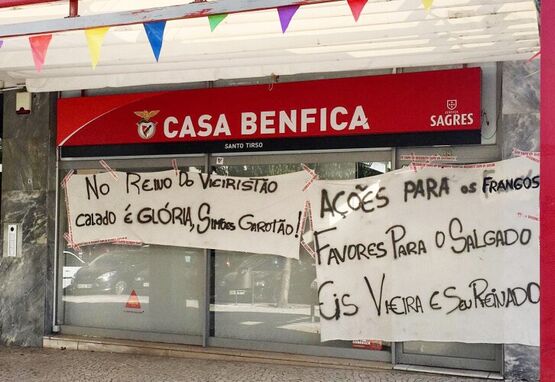 CASA BENFICA
SANTO TIRSO
SAGRES
No Reino Do Vieiristão
calado é GLÓRIA, Simões Garotão!
AÇÕES PARA os Frangos
Favores Para o Salgado
Eis Vieira e Seu Reinado